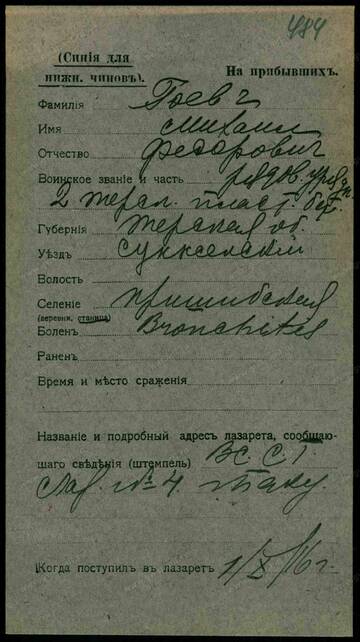 484
(Синія для
нижн. чиновъ).
На прибывшихъ.
Фамилія Гоевъ
Имя Михаил
Отчество Федорович
Воинское званіе и часть рядов.
2 терск. пласт. бат.
Губернія Терская об.
Уѣздъ Сунженский
Волость
Селеніе пришибская
(деревня, станица)
Боленъ Bronchitis
Раненъ
Время и мѣсто сраженія
Названіе и подробный адресъ лазарета, сообщаю-
щаго свѣдѣнія (штемпель) В.С.С.Г.
Лаз. № 4.
Когда поступилъ въ лазаретъ 1/X/16 г.